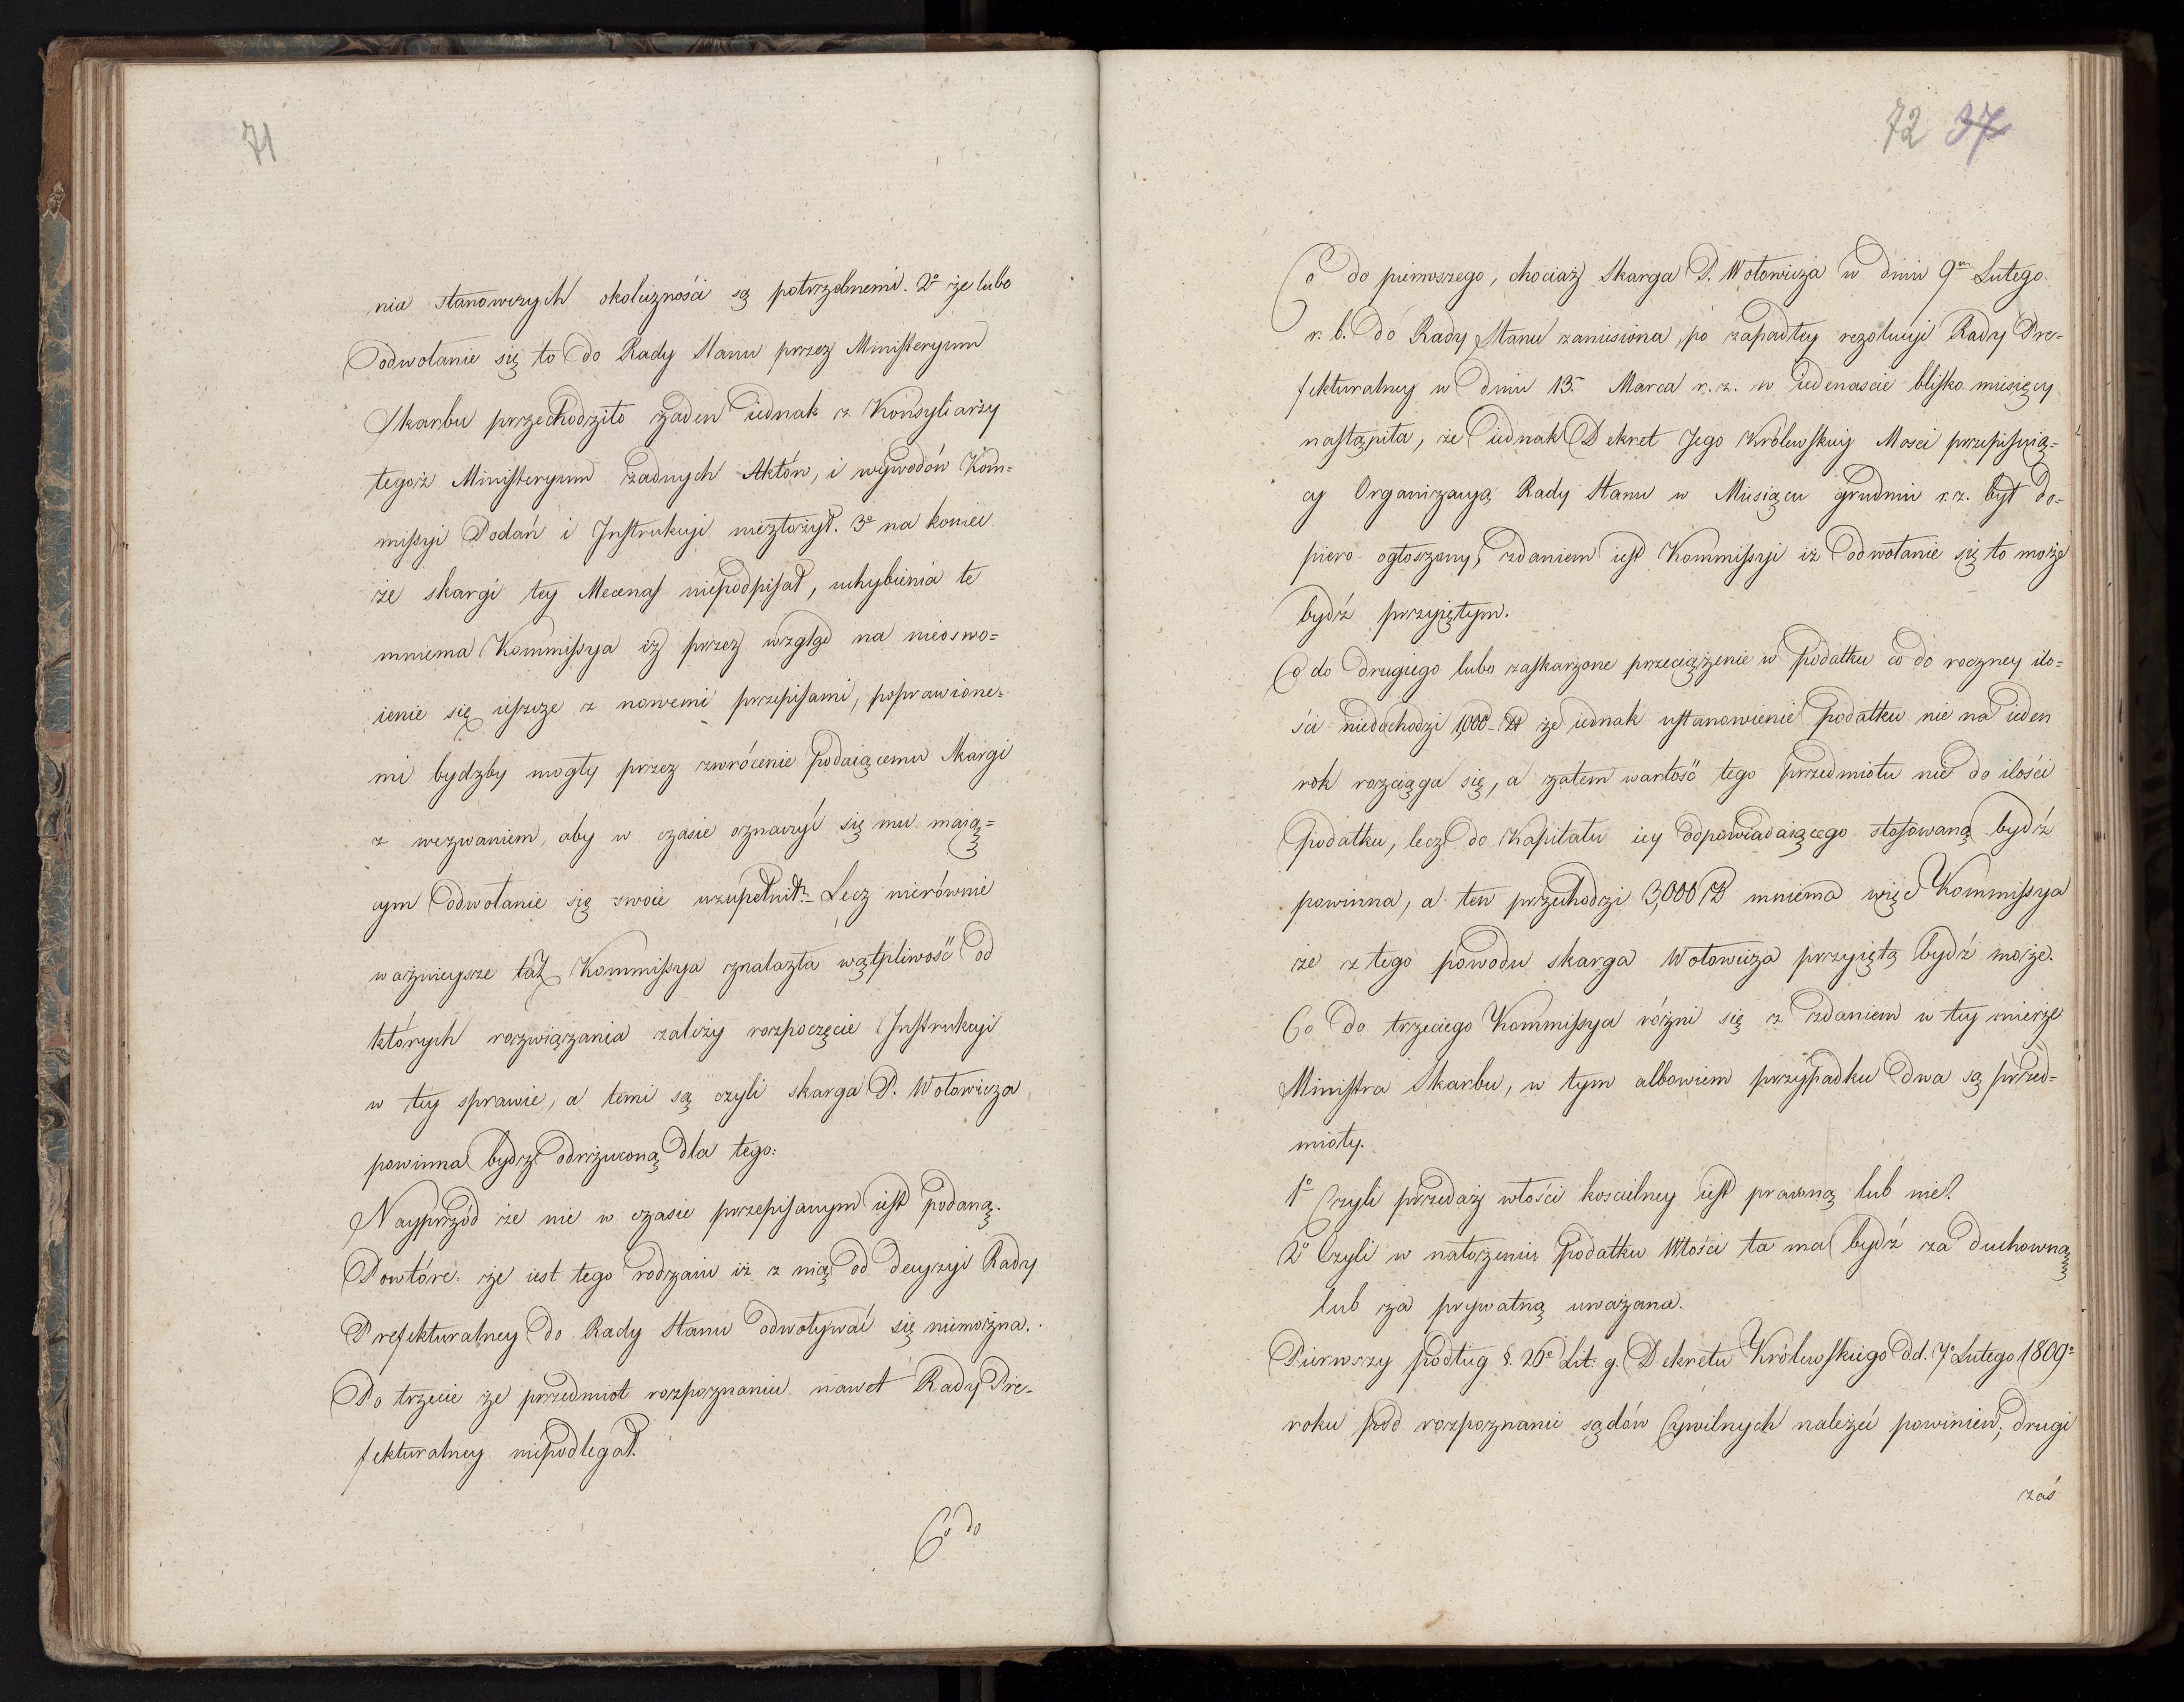 71
nia stanowczych okoliczności są potrzebnemi. 2o że lubo
odwołanie się to do Rady Stanu przez Ministeryum
Skarbu przechodziło żaden iednak z Konsyliarzy
tegoż Ministeryum żadnych Aktów, i wywodów Kom=
missyi Podań i Instrukcji niezłożył. 3o na koniec
że skargi tey Mecenas niepodpisał, uchybienia te
mniema Kommissya iż przez wzgląd na nieoswo=
ienie się ieszcze z nowemi przepisami, poprawione=
mi bydzby mogły przez zwrócenie podaiącemu Skargi
z wezwaniem, aby w czasie oznaczyć się mu maią=
cym odwołanie się swoie uzupełnił. Lecz nierównie
ważnieysze taż Kommissya znalazła wątpliwość od
których rozwiązania zależy rozpoczęcie Instrukcji
w tey sprawie, a temi są czyli skarga P. Wołowicza
powinna bydź odrzuconą dla tego:
Nayprzód że nie w czasie przepisanym iest podaną.
Powtóre: że iest tego rodzaiu iż z nią od decyzyi Rady
Prefekturalney do Rady Stanu odwoływać się niemożna.
Po trzecie że przedmiot rozpoznaniu nawet Rady Pre=
fekturalney niepodlegał.
Co do
72 37
Co do pierwszego, chociaż Skarga P. Wołowicza w dniu 9m Lutego
r. b. do Rady Stanu zaniesiona, po zapadłey rezolucyi Rady Pre=
fekturalney w dniu 13. Marca r. z. w iedenascie blisko miesięcy
nastąpiła, że iednak Dekret Jego Królewskiey Mosci przepisuią=
cy Organizacyą Rady Stanu w Miesiącu grudniu r. z. był do=
piero ogłoszony, zdaniem iest Kommissyi iż odwołanie się to może
bydź przyiętym.
Co do drugiego lubo zaskarżone przeciążenie w podatku co do roczney ilo=
ści niedochodzi 1,000 zł że iednak ustanowienie podatku nie na ieden
rok rozciąga się, a zatem wartość tego przedmiotu nie do ilości
podatku, lecz do Kapitału iey odpowiadaiącego stosowaną bydź
powinna, a ten przechodzi 3,000 zł mniema więc Kommissya
że z tego powodu skarga Wołowicza przyiętą bydź może.
Co do trzeciego Kommissya różni się z zdaniem w tey mierze
Ministra Skarbu, w tym albowiem przypadku dwa są przed=
mioty.
1o Czyli przedaż włości koscielney iest prawną lub nie?
2o Czyli w nałożeniu podatku Włości ta ma bydź za duchowną
lub za prywatną uważana.
Pierwszy podług §. 26o Lit: g. Dekretu Królewskiego d.d. 7o Lutego 1809o
roku pod rozpoznanie sądów Cywilnych należeć powinien, drugi
zaś